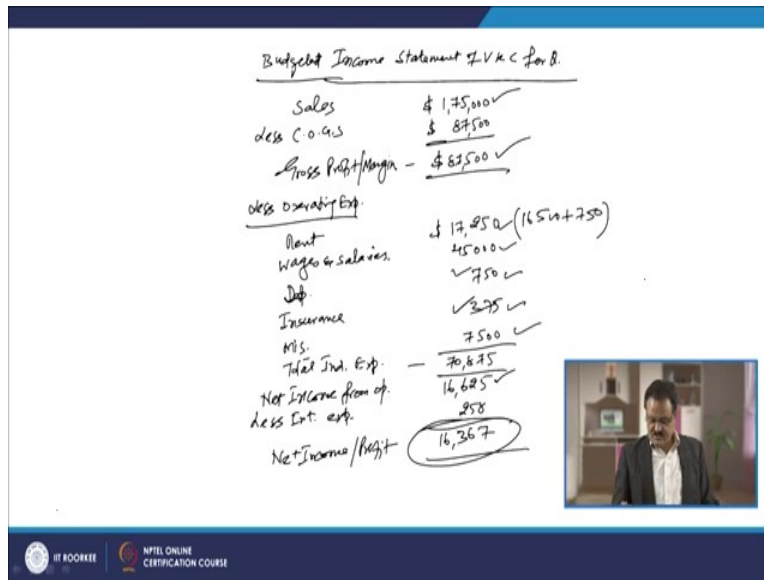 Budgeted Income Statement of VKC for Q.
Sales $ 1,75,000
Less C.O.G.S $ 87,500
Gross Profit/Margin - $ 87,500
Less Operating Exp.
Rent $ 17,250 (16500+750)
Wages & Salaries. 45000
Dep. 750
Insurance 375
Mis. 7500
Total Ind. Exp. - 70,875
Net Income from op. 16,625
Less Int. exp. 258
Net Income/Profit 16,367
IIT ROORKEE
NPTEL ONLINE
CERTIFICATION COURSE